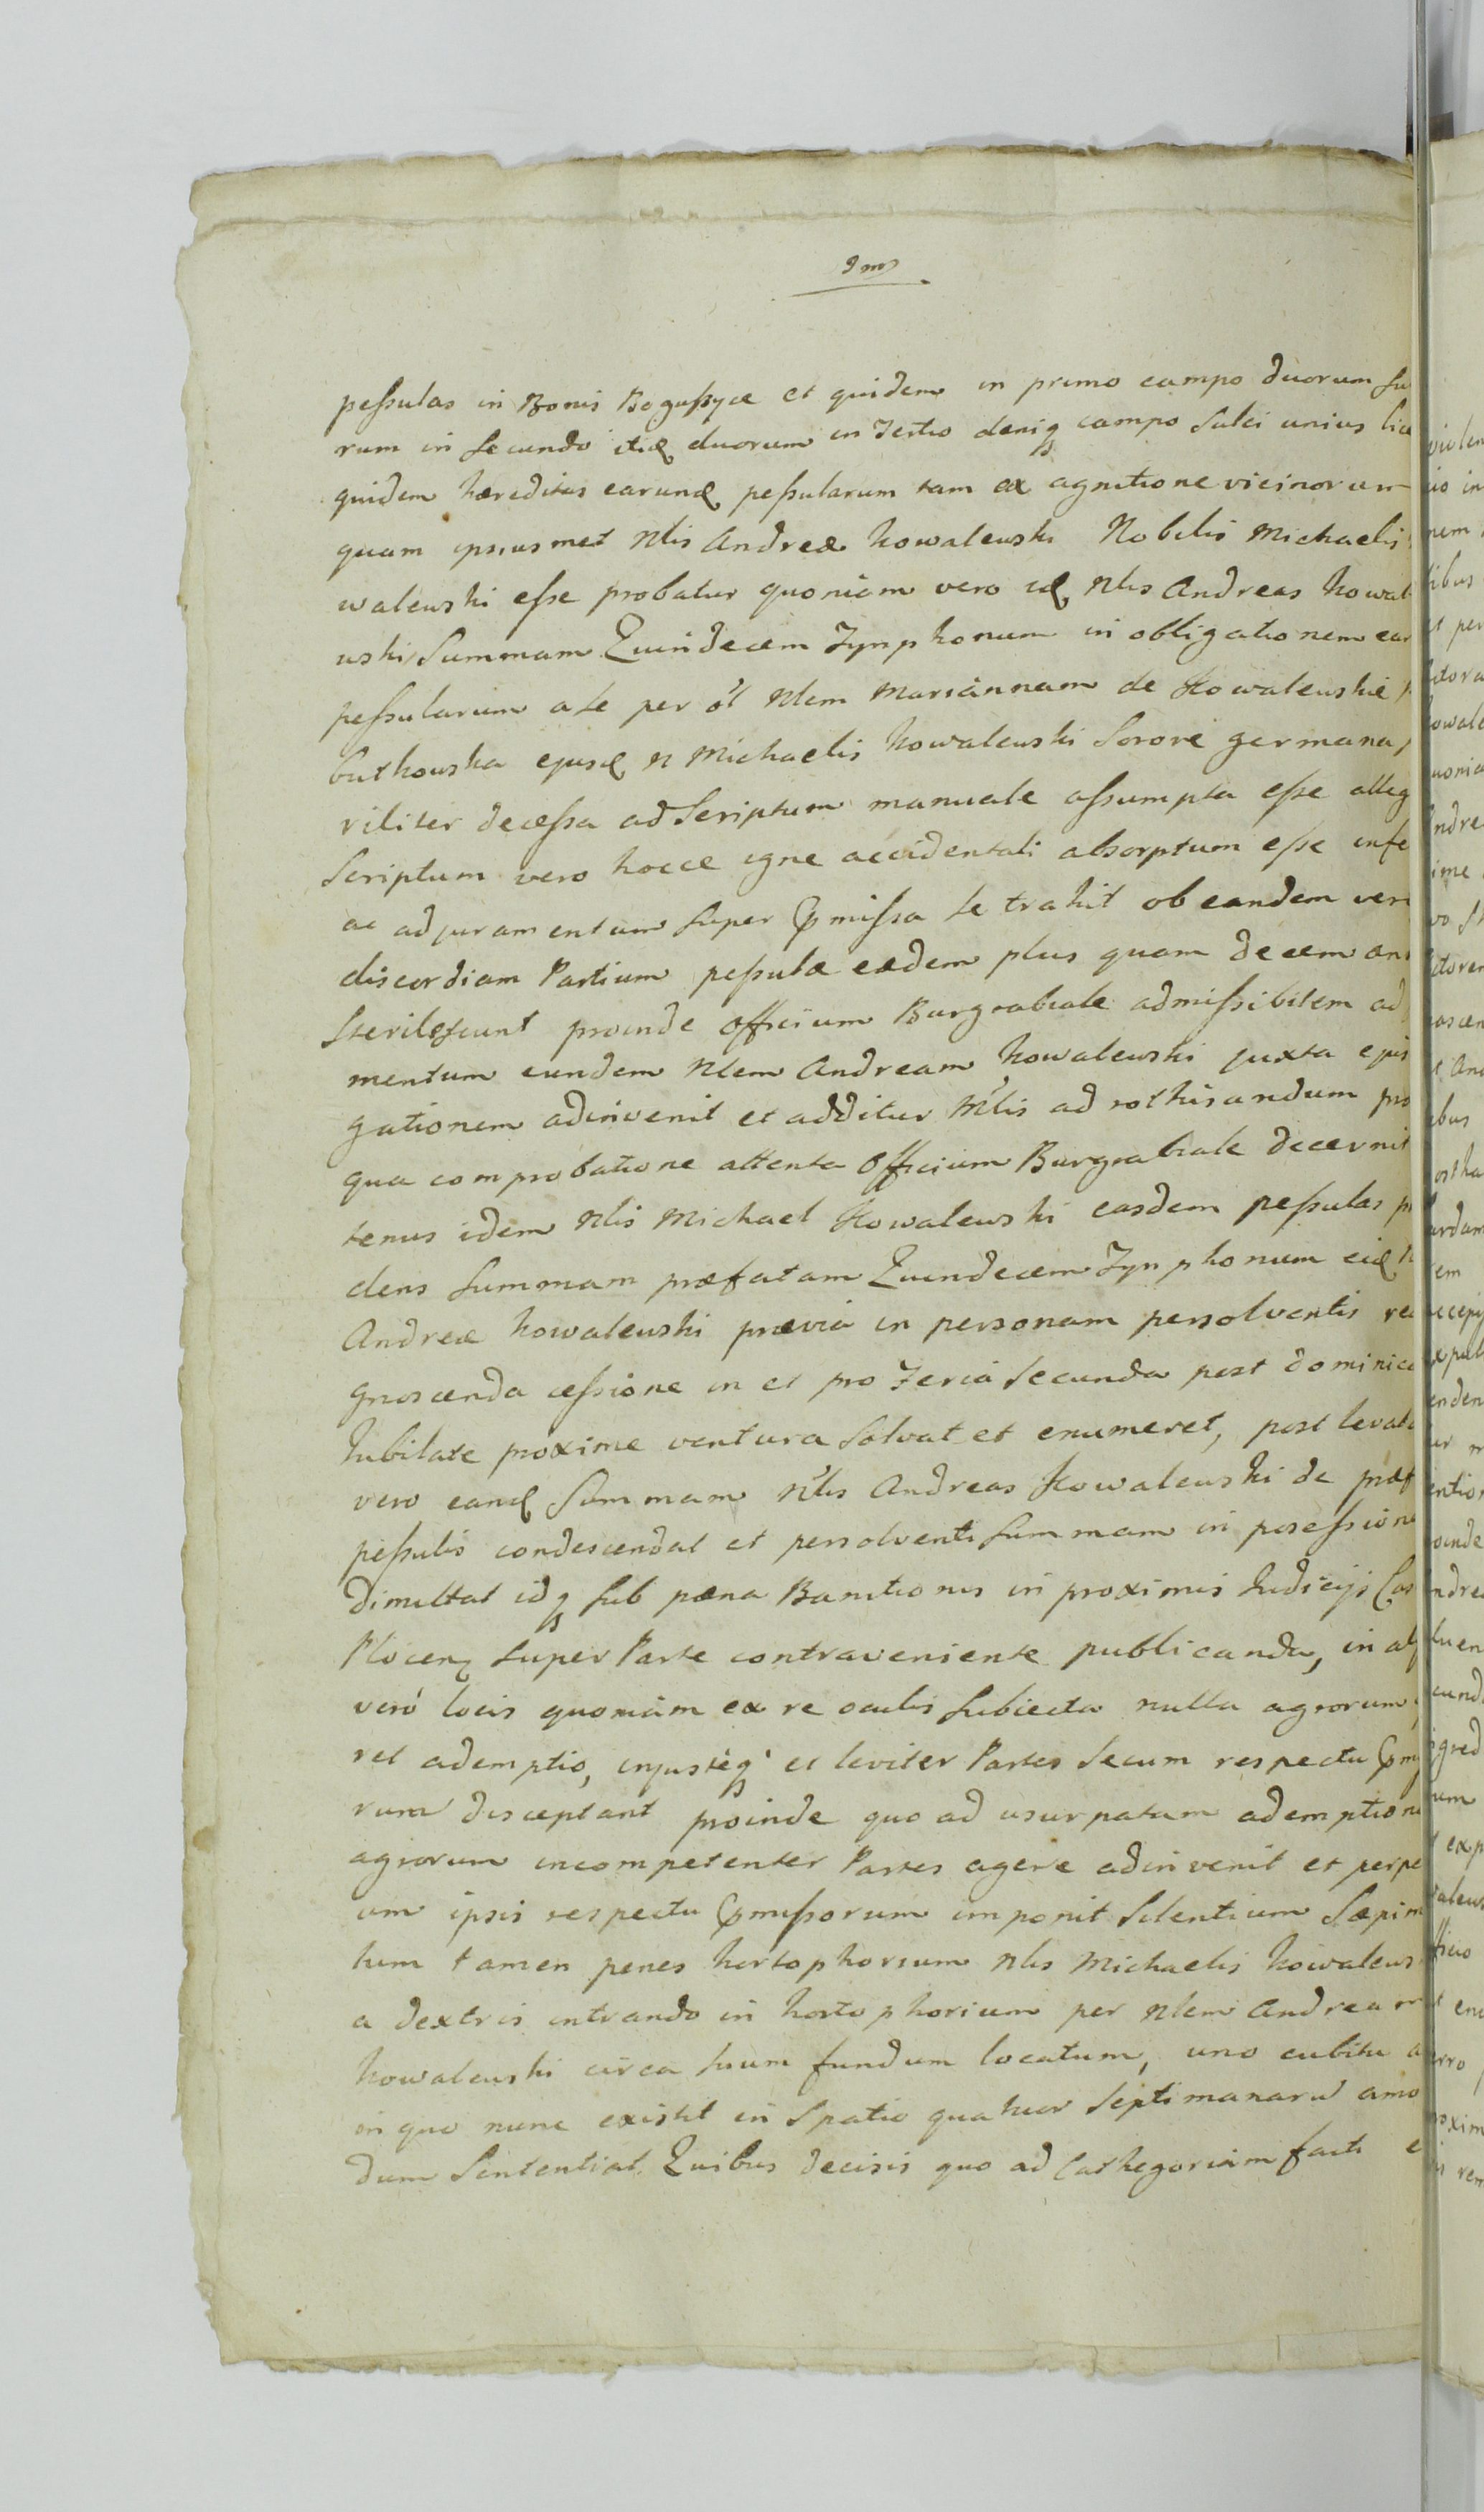 peſsulas in Bonis Boguſzyce et quidem in primo campo duorum Su
rum in Secundo itid duorum in Tertio deniq campo Sulci unius lice
quidem hæreditas earund peſsularum tam ex agnitione vicinorum
quam ipsiusmet Nlis Andreæ Kowalewski Nobilis Michaelis
walewski eſse probatur quoniam vero id Nlis Andreas Kowal
uski Summam Quindecem Tynphonum in obligationem ear
peſsularum a Se per ol Nlem Mariannam de Kowalewskie
butkowska ejusd N Michaelis Kowalewski Sorore germana
riliter deceſsa ad Scriptum manuale aſsumpta eſse alleg
Scriptum vero hocce igne accidentali absorptum eſse infe
ac ad juramentum Super præmiſsa Se trahit ob eandem vero
discordiam Partium peſsulæ eædem plus quam decem an
Sterilescunt proinde officium Burgrabiale admiſsibilem ad
mentum eundem Nlem Andream Kowalewski juxta ejus
gationem adinvenit et additur Mlis ad rothisandum pro
qua comprobatione attenta Officium Burgrabiale decernit
tenus idem Nlis Michael Kowalewski easdem peſsulas p
dens Summam præfatam Quindecem Tynphonum eid
Andreæ Kowalewski prævia in personam persolventis rec
gnoscenda ceſsione in et pro Feria Secunda post dominica
Jubilate proxime ventura Solvat et enumeret, post levata
vero eand Summam Nlis Andreas Kowalewski de præf
peſsulis condescendat et persolventi Summam in poseſsione
dimittat idq Sub pæna Banitionis in proximis Judicijs Cas
Plocen Super Parte contraveniente publicanda, in alj
veró locis quoniam ex re oculis Subiecta nulla agrorum
ret ademptio, injusteq et leviter Partes Secum respectu præmi
rum disceptant proinde quo ad usurpatam ademptione
agrorum incompetenter Partes agere adinvenit et perpe
um ipsis respectu præmiſsorum imponit Silentium Sæpim
tum tamen penes hortophorium Nlis Michaelis Kowalews
a dextris intrando in hortophorium per Nlem Andream
Kowalewski circa Suum fundum locatum, uno cubitu a
in quo nunc existit in Spatio quatuor Septimanaru amo
dum Sententiat. Quibus decisis quo ad Cathegoriam facti e